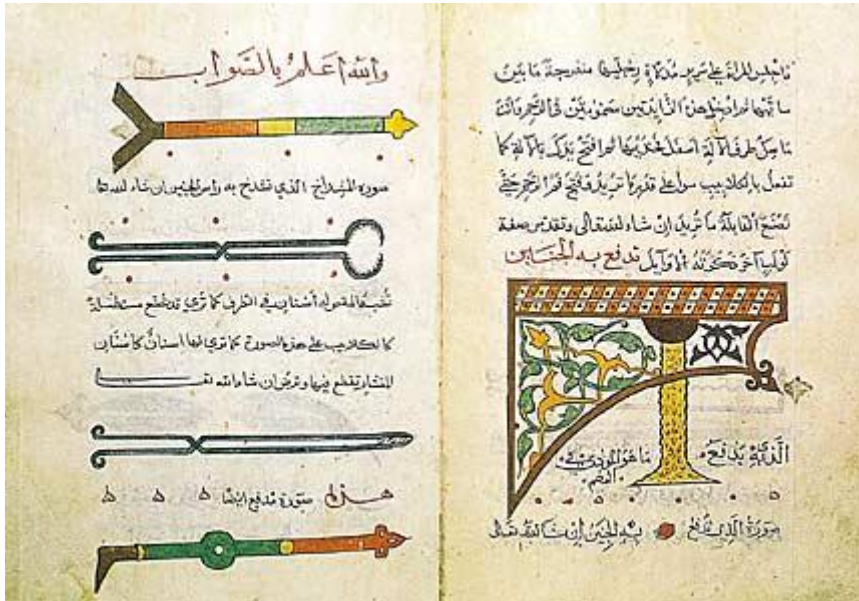 فاجلس المرأة على سرير مدلاة رجليها منفرجة ما بين
ساقيها ثم ادخل هذين الزايدتين مضمومتين في الرحم وانت
ماسك طرف الآلة اسفل فخذيها ثم افتح يدك بالآلة كما
تفعل بالكلاليب سواء على قدر ما تريد فتح فم الرحم حتى
تصنع القابلة ما تريد ان شاء الله تعالى وتقدس صفة
لولب آخر ذكرته الاوايل تدفع به الجنين
الذي يدفع
صورة الذي تدفع به الجنين إن شاء الله تعالى
والله اعلم بالصواب
صورة المشداخ الذي تشدخ به راس الجنين ان شاء الله
تشبه المقص له أسنان في الطرف كما ترى قد تصنع مستطيلة
كالكلاليب على هذه الصورة كما ترى لها اسنان كاسنان
المنشار تقطع بها وترض ان شاء الله
هذه صورة مدفع ايضا